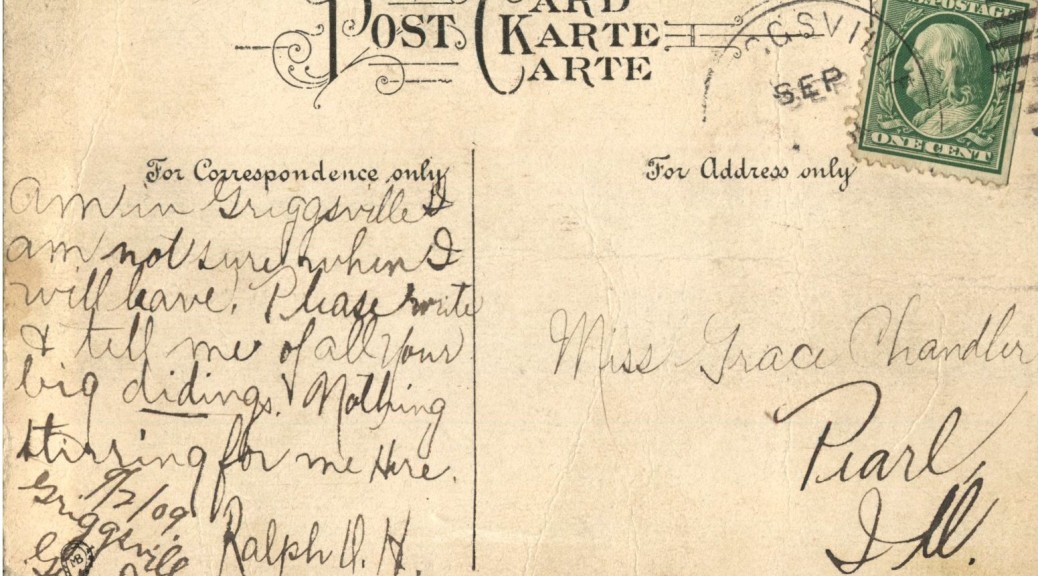 CARD
POST KARTE
CARTE
GGSVILL
SEP
POSTAGE
ONE CENT
For Correspondence only
For Address only
Am in Griggsville &
am not sure when I
will leave. Please write
& tell me of all your
big didings. Nothing
stirring for me Here.
9/7/09
Griggsville
Ralph O. H.
MB
Miss Grace Chandler
Pearl,
Ill.